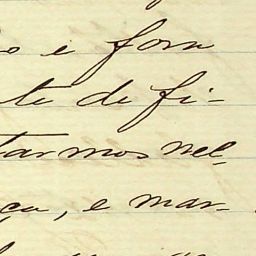 o e forn
te de fi-
tarmos nel-
ça, e mar-